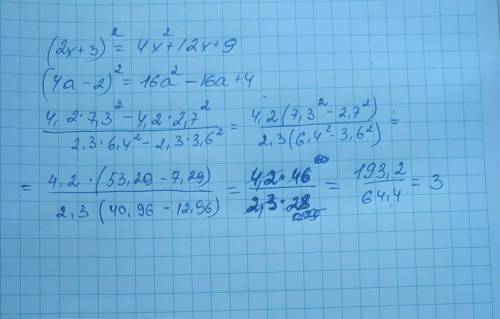 (2x+3)² = 4x²+12x+9
(4a-2)² = 16a² - 16a + 4
(4,2·7,3² - 4,2·2,7²)/(2,3·6,4² - 2,3·3,6²) = 4,2(7,3² - 2,7²)/2,3(6,4² - 3,6²) =
= 4,2·(53,29 - 7,29)/2,3(40,96 - 12,96) = 4,2·46/2,3·28 = 193,2/64,4 = 3